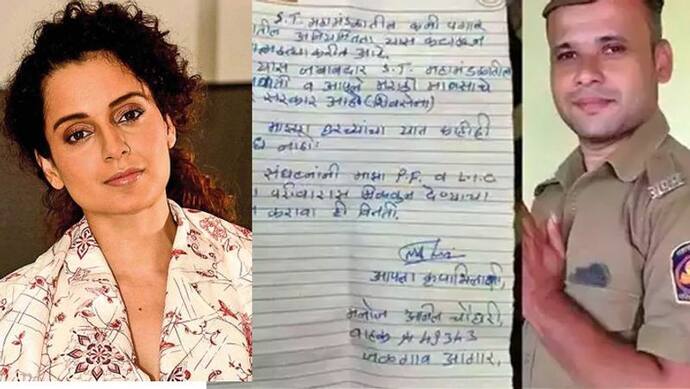 S.T. महामंडळातील कमी पगार
तील अनियमितता यास कंटाळून
त्महत्या करीत आहे.
यास जबाबदार S.T. महामंडळातील
व आपले मराठी माणसाचे
सरकार आहे (शिवसेना)
माझ्या घरच्यांचा यात काहीही
नाही.
संघटनांनी माझा P.F. व L.I.C
परीवारास मिळवून देण्याचा
करावा ही विनंती.
आपला कृपाभिलाषी,
मनोज अनिल चौधरी,
वाहक 49343
जळगाव आगार,